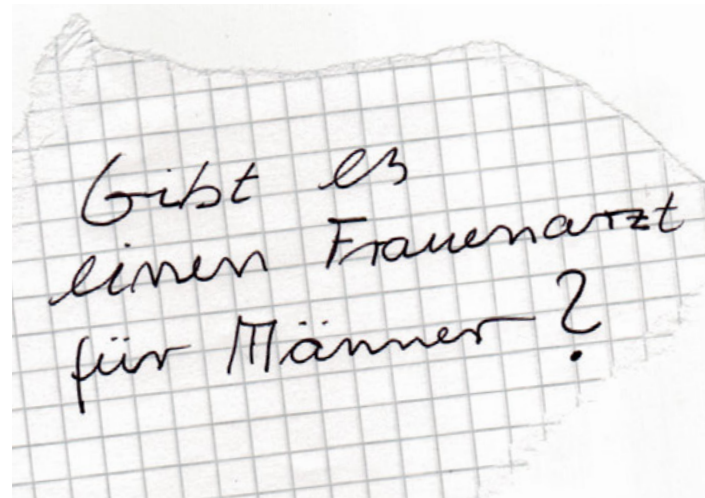 Gibt es
einen Frauenarzt
für Männer?